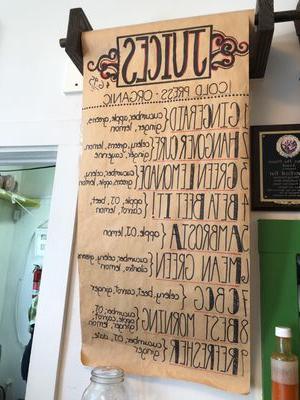 JUICES
COLD PRESS · ORGANIC
1. GINGERAID
cucumber, apple, greens,
ginger, lemon
2. HANGOVER CURE
celery, greens, lemon,
ginger, cayenne
3. GREEN LEMONADE
cucumber,
apple, greens, lemon
4. BETA BEET IT!
apple, OJ, beet,
carrot, lemon
5. AMBROSIA
apple, OJ, lemon
6. MEAN GREEN
cucumber, celery, greens
cilantro, lemon
7. CBCG
celery, beet, carrot, ginger
8. BEST MORNING
cucumber, OJ,
carrot, apple,
ginger, lemon
9. REFRESHER
cucumber, OJ,
ginger